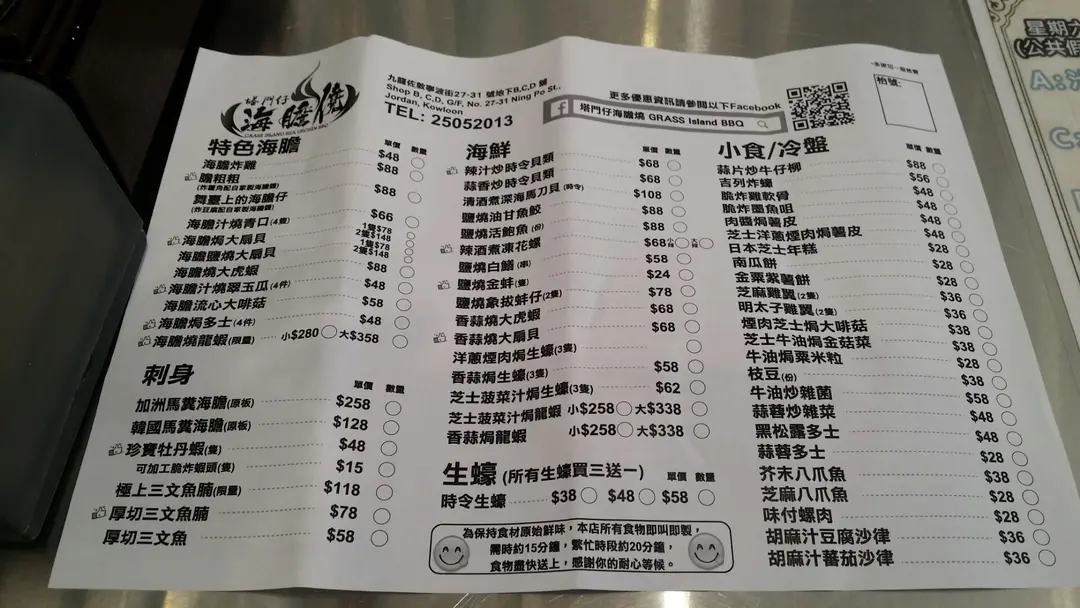 塔門仔
海膽燒
GRASS ISLAND SEA URCHIN BBQ
九龍佐敦寧波街27-31 號地下B,C,D 舖
Shop B, C, D, G/F, No. 27-31 Ning Po St.,
Jordan, Kowloon
TEL: 25052013
更多優惠資訊請參閱以下Facebook
塔門仔海膽燒 GRASS Island BBQ
枱號:
特色海膽 單價 數量
海膽炸雞 $48
膽粗粗 $88
(炸薯角配自家製海膽醬)
舞臺上的海膽仔 $88
(炸豆腐配自家製海膽醬)
海膽汁燒青口(4隻) $66
海膽焗大扇貝 1隻$78 2隻$148
海膽鹽燒大扇貝 1隻$78 2隻$148
海膽燒大虎蝦 $88
海膽汁燒翠玉瓜(4件) $48
海膽流心大啡菇 $58
海膽焗多士(4件) $48
海膽燒龍蝦(限量) 小$280 大$358
刺身 單價 數量
加洲馬糞海膽(原板) $258
韓國馬糞海膽(原板) $128
珍寶牡丹蝦(隻) $48
可加工脆炸蝦頭(隻) $15
極上三文魚腩(限量) $118
厚切三文魚腩 $78
厚切三文魚 $58
海鮮 單價 數量
辣汁炒時令貝類 $68
蒜香炒時令貝類 $68
清酒煮深海馬刀貝(時令) $108
鹽燒油甘魚鮫 $88
鹽燒活鮑魚(份) $88
辣酒煮凍花螺 $68
鹽燒白鱔(串) $58
鹽燒金蚌(隻) $24
鹽燒象拔蚌仔(2隻) $78
香蒜燒大虎蝦 $68
香蒜燒大扇貝 $68
洋蔥煙肉焗生蠔(3隻)
香蒜焗生蠔(3隻) $58
芝士菠菜汁焗生蠔(3隻) $62
芝士菠菜汁焗龍蝦 小$258 大$338
香蒜焗龍蝦 小$258 大$338
生蠔(所有生蠔買三送一) 單價 數量
時令生蠔 $38 $48 $58
為保持食材原始鮮味，本店所有食物即叫即製，
需時約15分鐘，繁忙時段約20分鐘，
食物盡快送上，感謝你的耐心等候。
小食/冷盤 單價 數量
蒜片炒牛仔柳 $88
吉列炸蠔 $56
脆炸雞軟骨 $48
脆炸墨魚咀 $48
肉醬焗薯皮 $48
芝士洋蔥煙肉焗薯皮 $48
日本芝士年糕 $28
南瓜餅 $28
金粟紫薯餅 $28
芝麻雞翼(2隻) $36
明太子雞翼(2隻) $36
煙肉芝士焗大啡菇 $38
芝士牛油焗金菇菜 $38
牛油焗粟米粒 $28
枝豆(份) $38
牛油炒雜菌 $58
蒜蓉炒雜菜 $48
黑松露多士 $48
蒜蓉多士 $28
芥末八爪魚 $38
芝麻八爪魚 $28
味付螺肉 $28
胡麻汁豆腐沙律 $36
胡麻汁蕃茄沙律 $36
星期六
(公共假
A:
C: